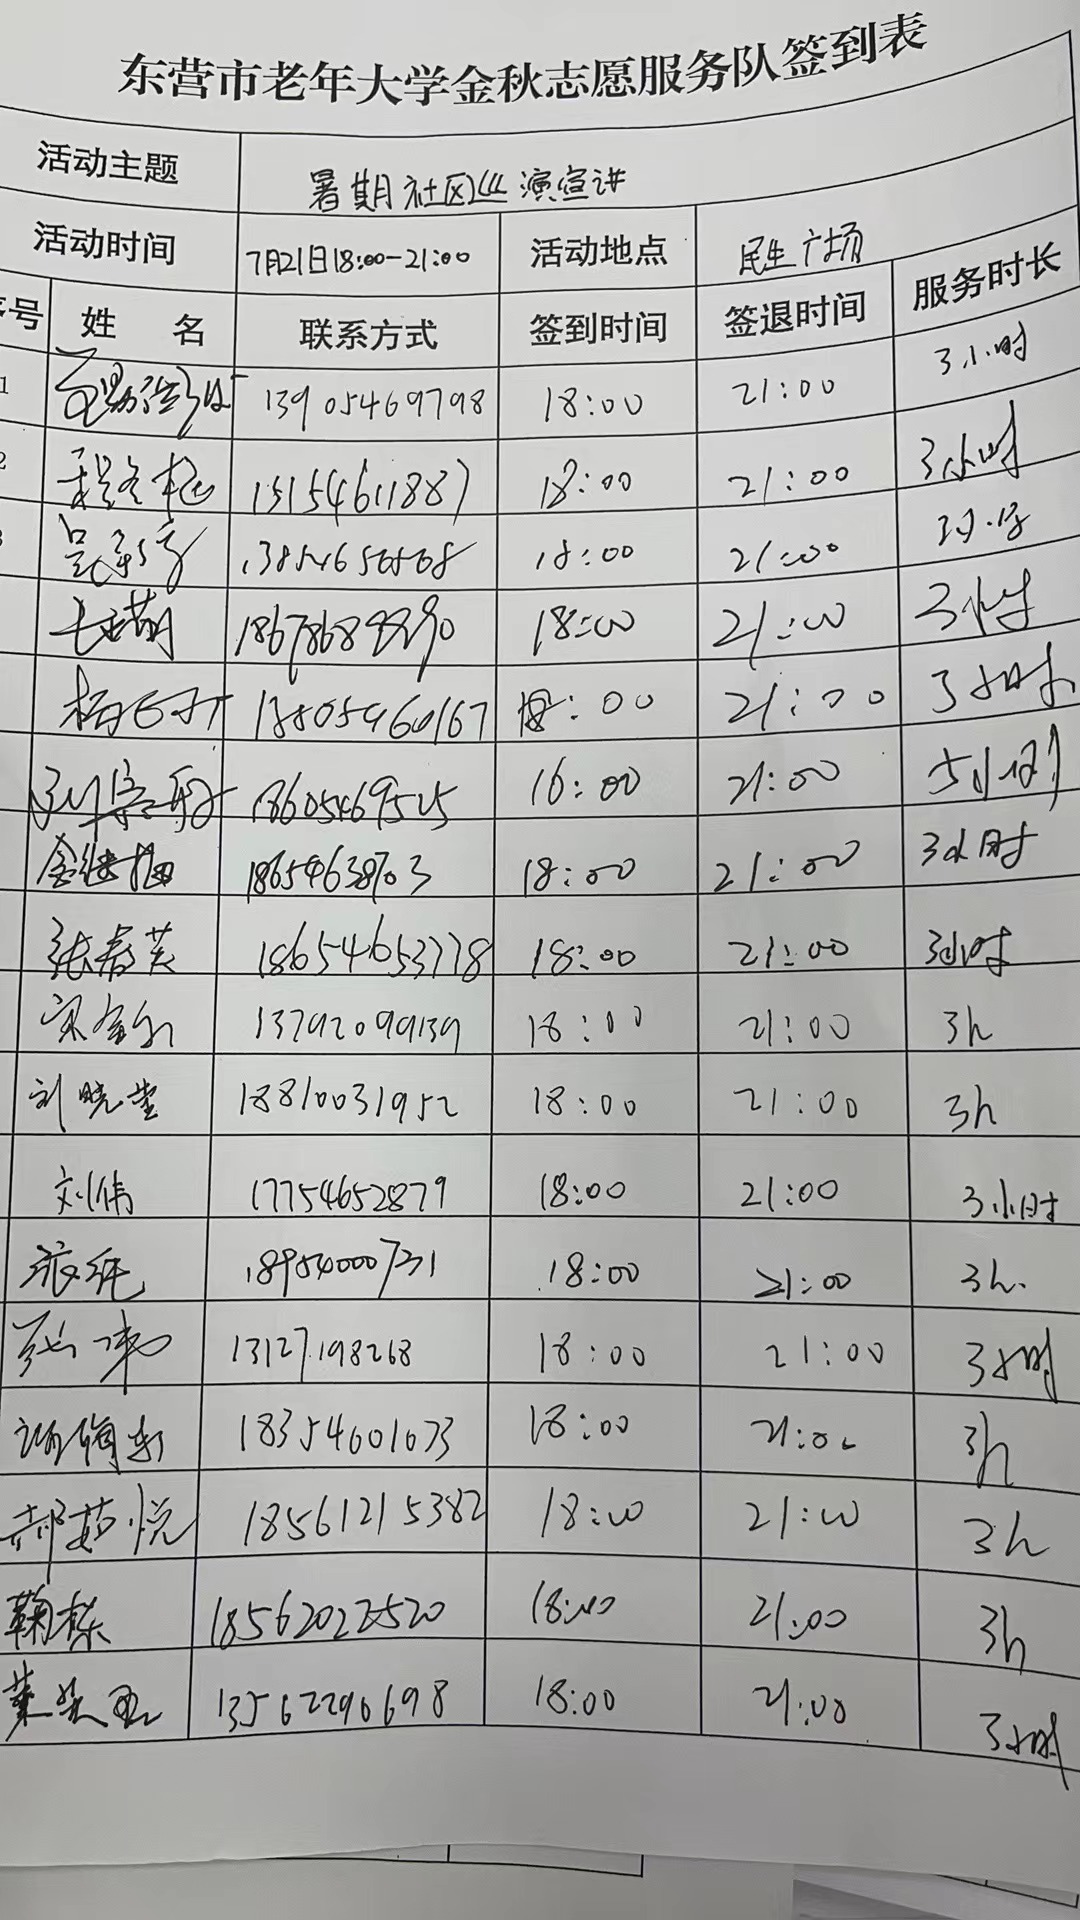 东营市老年大学金秋志愿服务队签到表
活动主题 暑期社区巡演宣讲
活动时间 7月21日18:00-21:00 活动地点 民生广场
序号 姓 名 联系方式 签到时间 签退时间 服务时长
1 13905469798 18:00 21:00 3小时
2 15154611887 18:00 21:00 3小时
3 18:00 21:00 3小时
18:00 21:00 3小时
18:00 21:00 3小时
16:00 21:00 5小时
金继梅 18654638703 18:00 21:00 3小时
张春芙 18654653778 18:00 21:00 3小时
13792099139 18:00 21:00 3h
刘晓堂 18810031952 18:00 21:00 3h
刘伟 17754652879 18:00 21:00 3小时
18954000731 18:00 21:00 3h.
13127198268 18:00 21:00 3小时
18354601673 18:00 21:00 3h
郝茹悦 18561215382 18:00 21:00 3h
鞠栋 18562022520 18:00 21:00 3h
13562290698 18:00 21:00 3小时